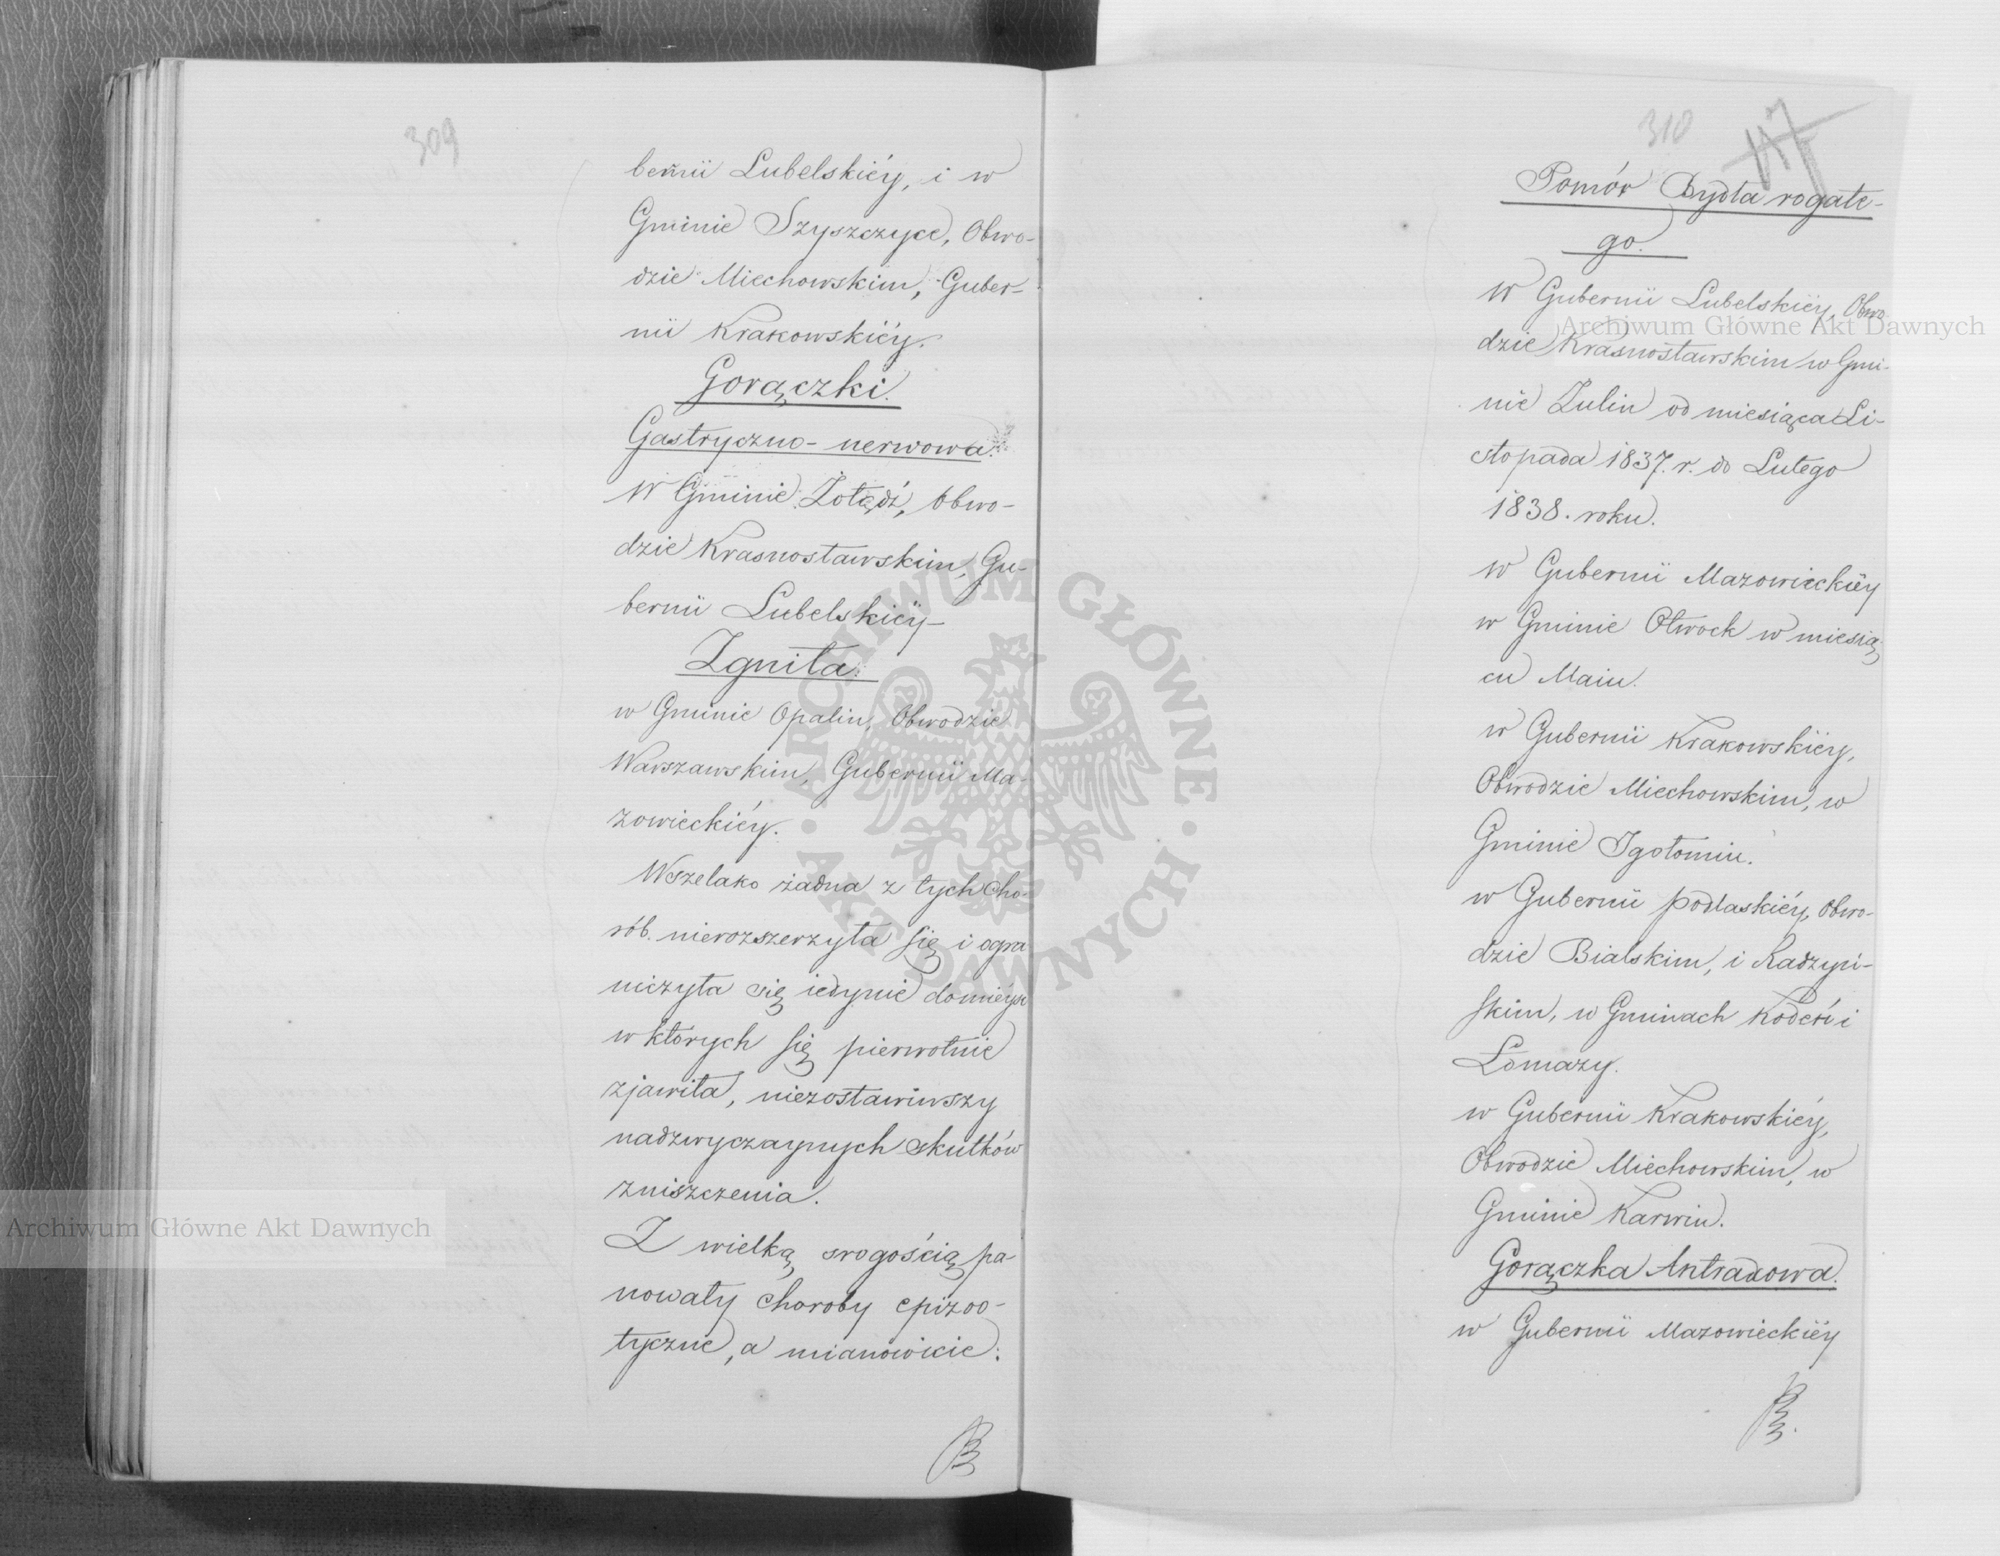 309
bernii Lubelskiéy, i w
Gminie Szyszczyce, Obwo-
dzie Miechowskim, Guber-
nii Krakowskiéy.
Gorączki.
Gastryczno-nerwowa.
W Gminie Żołądź, Obwo-
dzie Krasnostawskim, Gu-
bernii Lubelskiéy-
Zgniła.
w Gminie Opalin, Obwodzie
Warszawskim, Gubernii Ma-
zowieckiéy.
Wszelako żadna z tych cho-
rób nierozszerzyła się i ogra
niczyła się iedynie do mieysc
w których się pierwotnie
zjawiła, niezostawiwszy
nadzwyczaynych skutków
zniszczenia.
Z wielką srogością pa-
nowały choroby epizoo-
tyczne, a mianowicie:
310
117
Pomór Bydła rogate-
go.
W Gubernii Lubelskiéy, Obwo
dzie Krasnostawskim w Gmi-
nie Żulin od miesiąca Li-
stopada 1837. r. do Lutego
1838. roku.
w Gubernii Mazowieckiéy
w Gminie Otwock w miesią
cu Maiu.
w Gubernii Krakowskiéy,
Obwodzie Miechowskim, w
Gminie Igołomiu.
w Gubernii Podlaskiéy, Obwo-
dzie Bialskim, i Radzyń-
skim, w Gminach Kodeń i
Łomazy.
w Gubernii Krakowskiéy,
Obwodzie Miechowskim, w
Gminie Karwin.
Gorączka Antraxowa.
w Gubernii Mazowieckiéy
Archiwum Główne Akt Dawnych
Archiwum Główne Akt Dawnych
ARCHIWUM GŁÓWNE AKT DAWNYCH